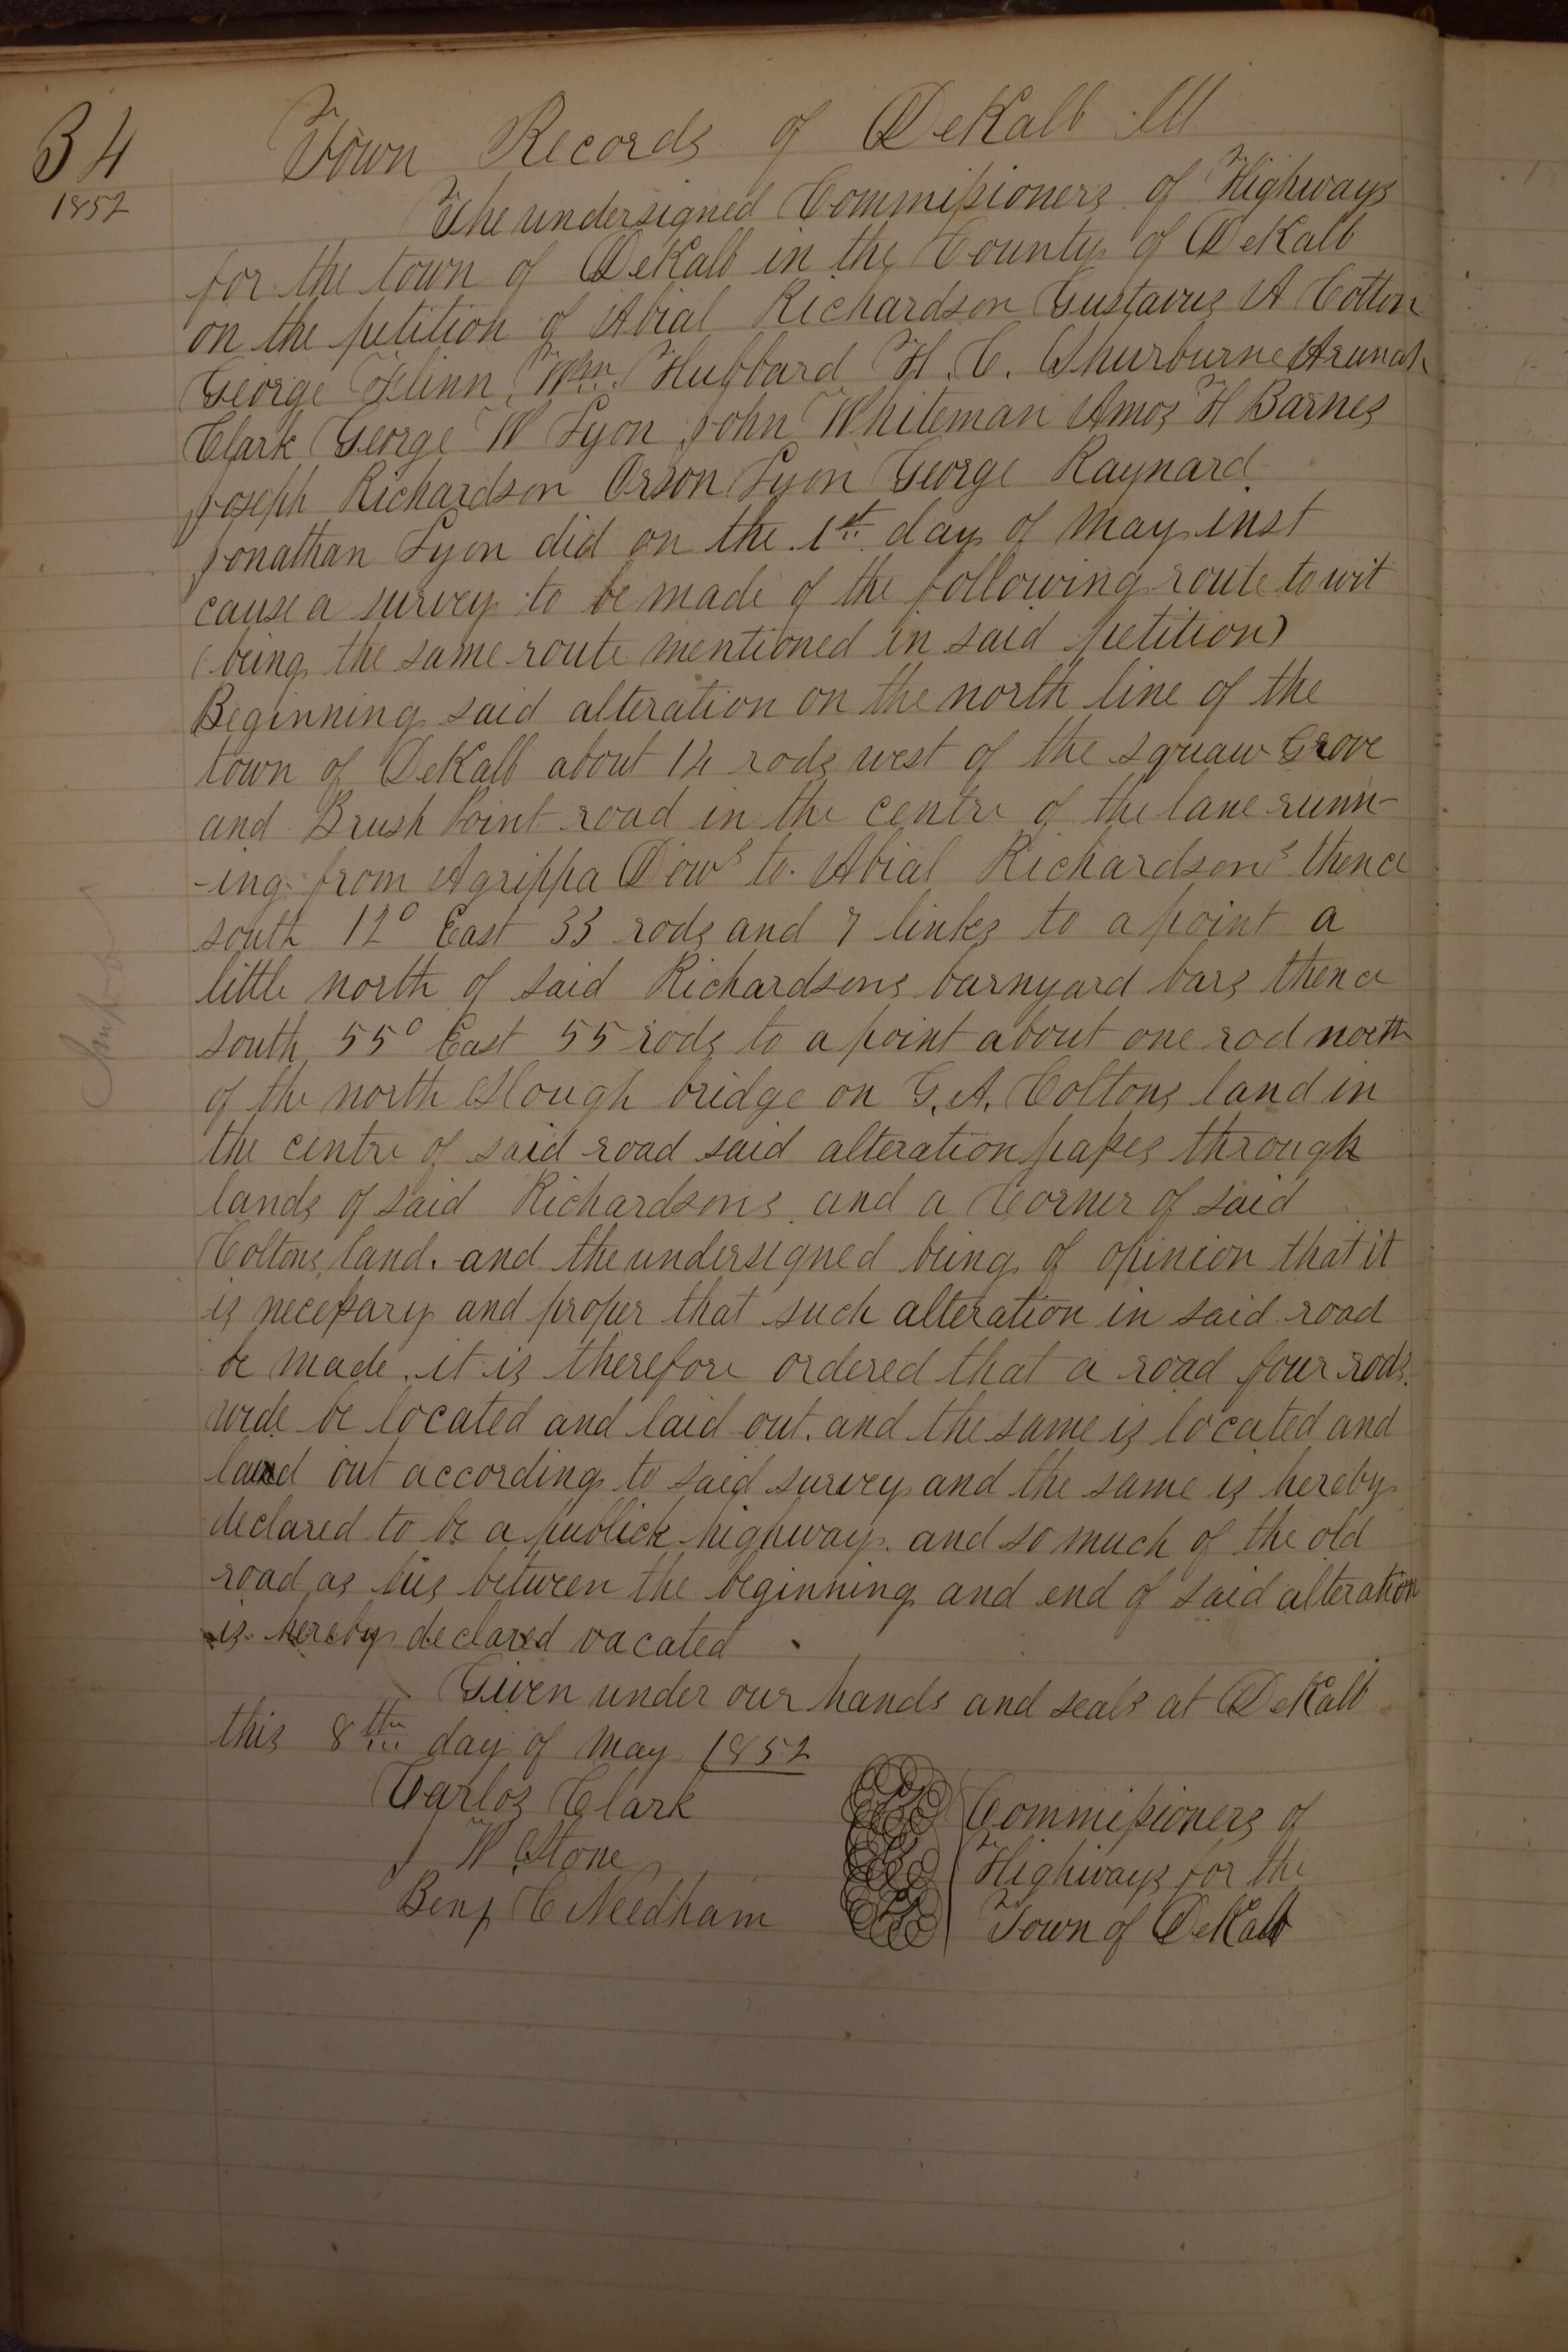 34
1852
Town Records of DeKalb Ill
The undersigned Commissioners of Highways
for the town of DeKalb in the County of DeKalb
on the petition of Abial Richardson Gustavus A Colton
George Flinn Wm. Hubbard H. C. Shurburne Arunah
Clark George W Lyon John Whiteman Amos H Barnes
Joseph Richardson Orson Lyon George Raynard
Jonathan Lyon did on the 1st day of May inst
cause a survey to be made of the following route to wit
(being the same route mentioned in said petition)
Beginning said alteration on the north line of the
town of DeKalb about 14 rods west of the squaw Grove
and Brush Point road in the centre of the lane runn-
-ing from Agrippa Dows to Abial Richardsons thence
south 12° East 33 rods and 7 links to a point a
little north of said Richardsons barnyard bars thence
south 55° East 55 rods to a point about one rod north
of the north Slough bridge on G. A. Coltons land in
the centre of said road said alteration passes through
lands of said Richardsons and a Corner of said
Coltons land. and the undersigned being of opinion that it
is necessary and proper that such alteration in said road
be made. it is therefore ordered that a road four rods
wide be located and laid out. and the same is located and
laid out according to said survey and the same is hereby
declared to be a publick highway. and so much of the old
road as lies between the beginning and end of said alteration
is hereby declared vacated
Given under our hands and seals at DeKalb
this 8th day of May 1852
Carlos Clark
J W Stone
Benj C Needham
Commissioners of
Highways for the
Town of DeKalb